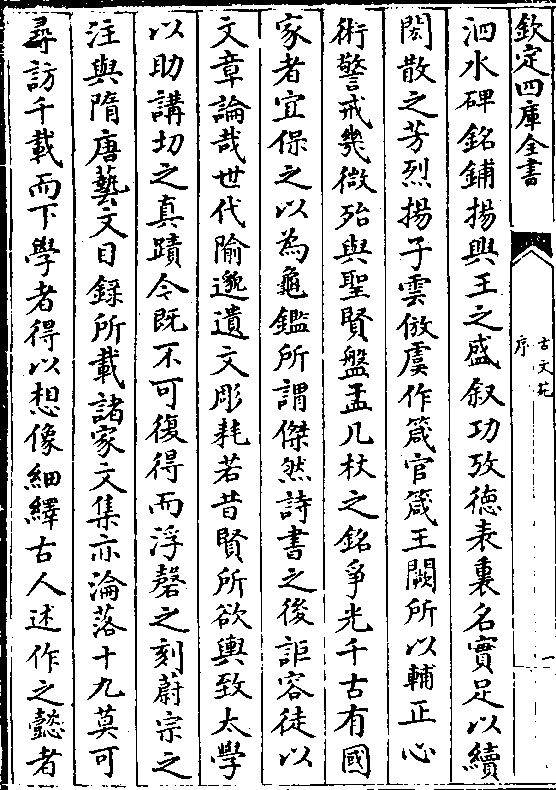 欽定四庫全書
古文苑
序
一
泗水碑銘鋪揚興王之盛叙功攷德表裏名實足以續
閎散之芳烈揚子雲倣虞作箴官箴王闕所以輔正心
術警戒幾微殆與聖賢盤盂几杖之銘爭光千古有國
家者宜保之以為龜鑑所謂傑然詩書之後詎容徒以
文章論哉世代隃邈遺文彫耗若昔賢所欲輿致太學
以助講切之真蹟今既不可復得而浮磬之刻蔚宗之
注與隋唐藝文目錄所載諸家文集亦淪落十九莫可
尋訪千載而下學者得以想像紬繹古人述作之懿者